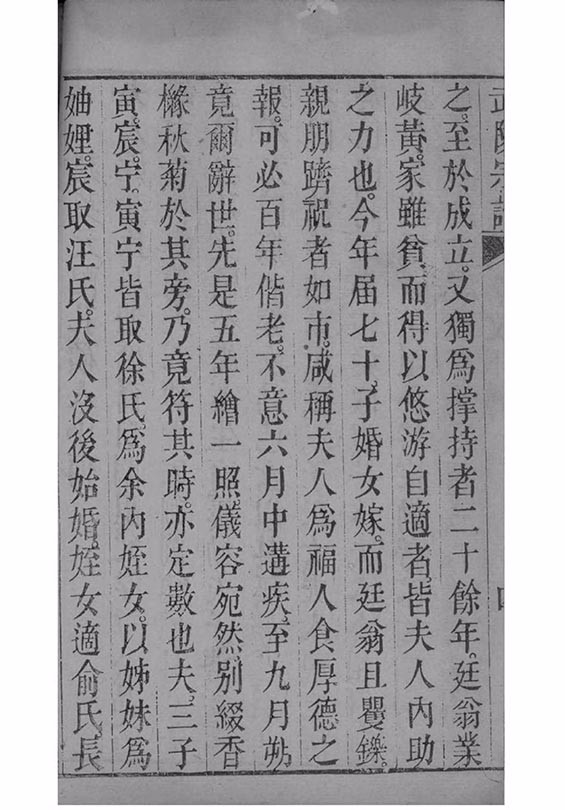 之至於成立。又獨爲撑持者二十餘年。廷翁業
岐黃。家雖貧。而得以悠游自適者。皆夫人內助
之力也。今年届七十。子婚女嫁。而廷翁且矍鑠。
親朋躋祝者如市。咸稱夫人爲福人食厚德之
報。可必百年偕老。不意六月中遘疾。至九月朔
竟爾辭世。先是五年繪一照。儀容宛然。别綴香
櫞秋菊於其旁。乃竟符其時。亦定數也夫。三子
寅。宸。宁。寅宁皆取徐氏。爲余內姪女。以姊妹爲
妯娌。宸取汪氏。夫人沒後始婚。姪女適俞氏。長